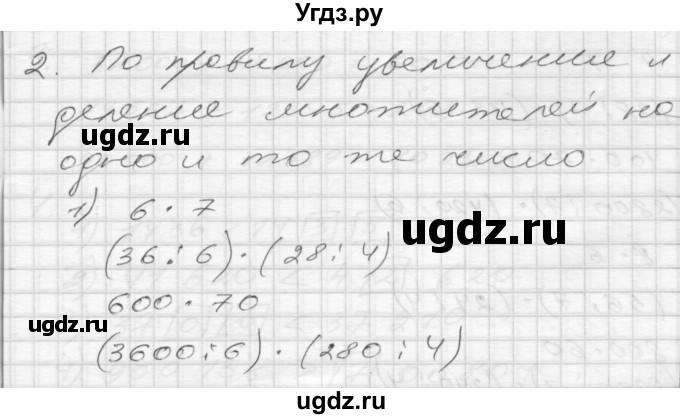 Угдз.ру
2. По правилу увеличение и
деление множителей на
одно и то же число
ugdz.ru
1) 6 · 7
(36 : 6) · (28 : 4)
ugdz.ru
600 · 70
ugdz.ru
(3600 : 6) · (280 : 4)
ugdz.ru
ugdz.ru